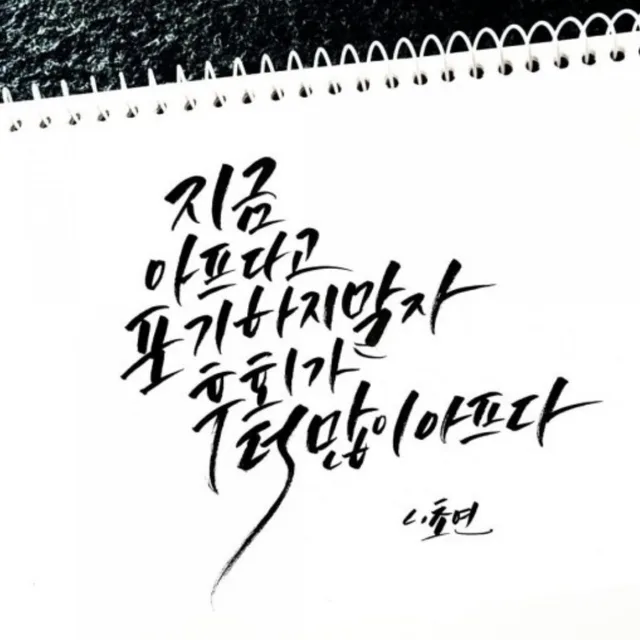 지금
아프다고
포기하지말자
후회가
더많이아프다
초연